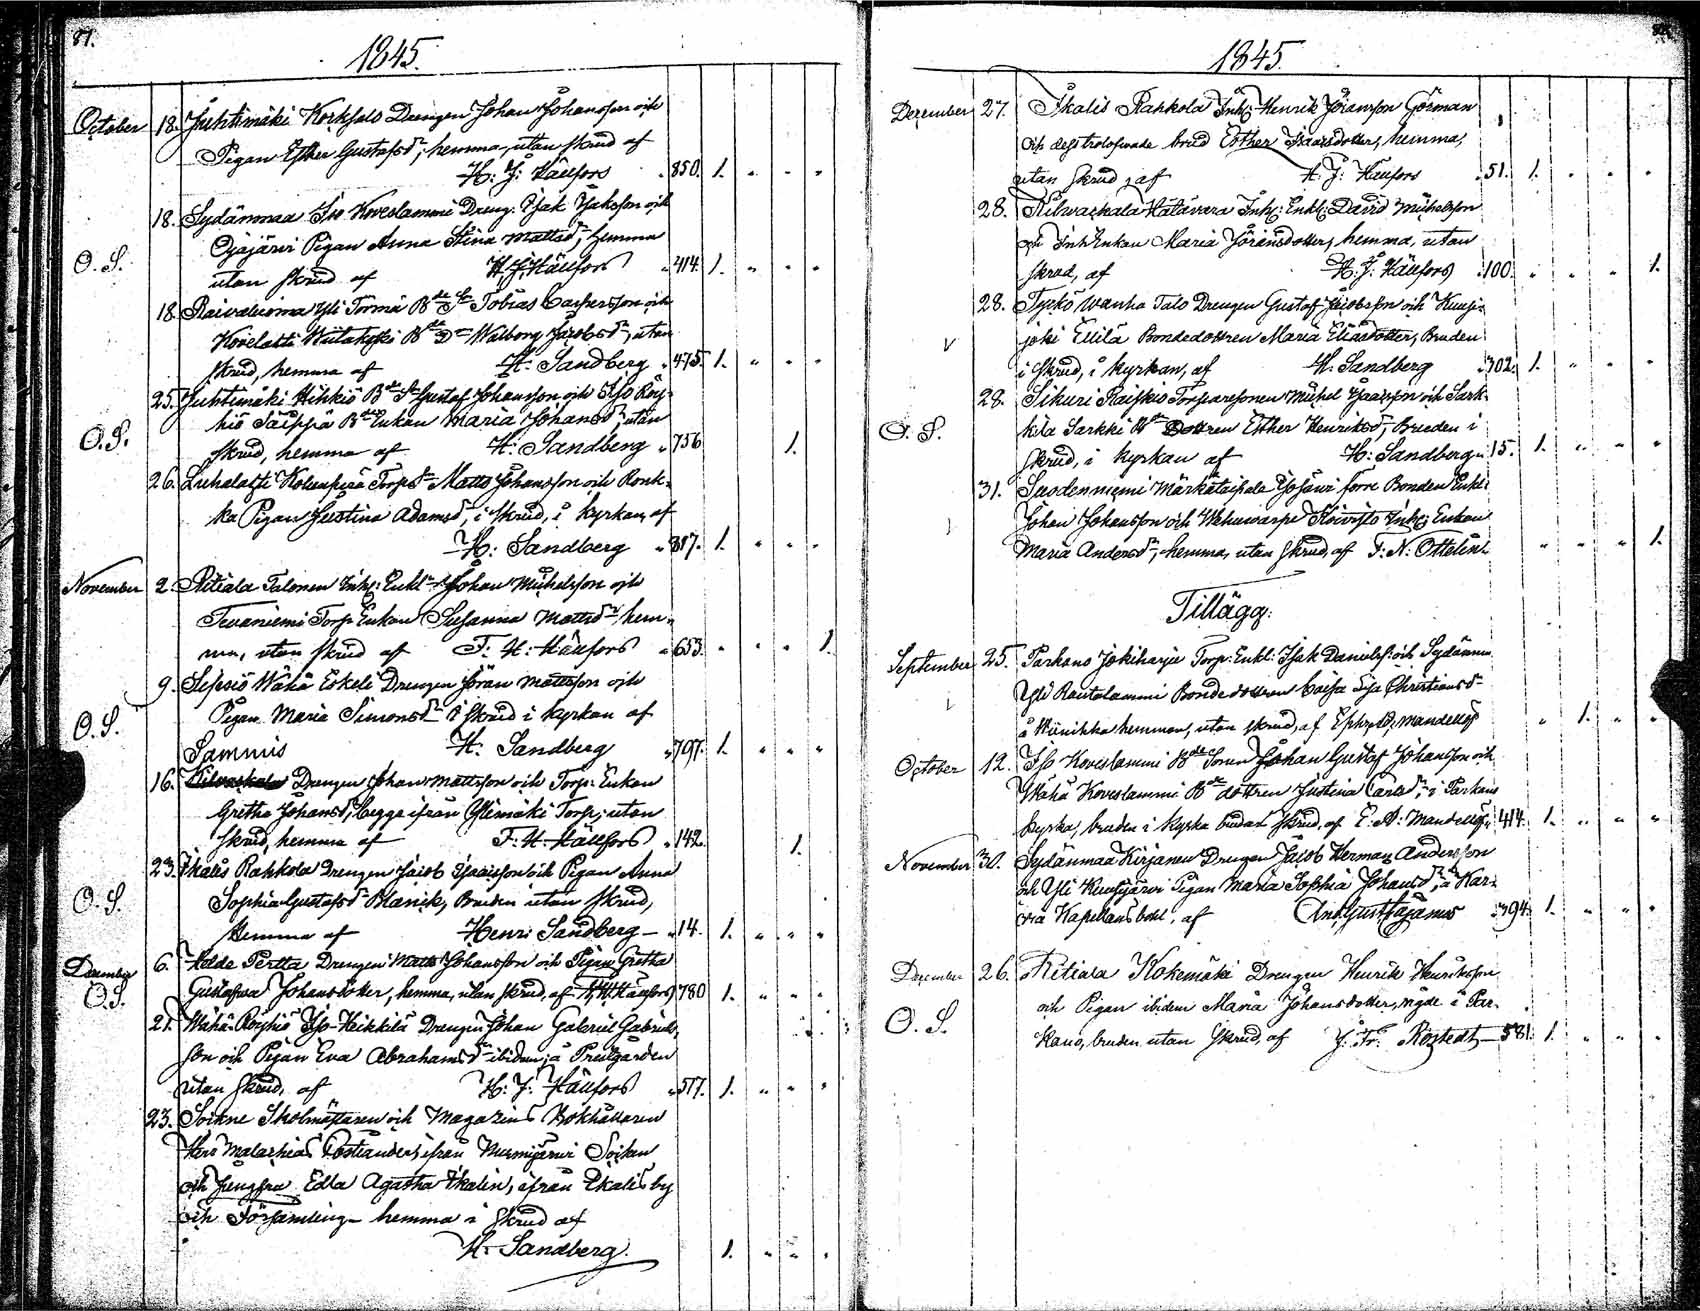 81.
1845.
October 18. Juhtimäki Korksalo Drengen Johan Johansson och
Pigan Esther Gustafsdr, hemma, utan skrud af
H: J: Hällfors 850. 1.
18. Sydänmaa Iso Koveslammi Dreng. Isak Isaksson och
Ojajärvi Pigan Anna Stina Mattsdr, hemma
O. S. utan skrud af H. J. Hällfors 414. 1.
18. Raivaluoma Yli Törmä Bde Sn Tobias Caspersson och
Kovelahti Bde Dr Walborg Jacobsdr, utan
skrud, hemma af H. Sandberg 475. 1.
25. Juhtimäki Hihkiö Bde Sn Gustaf Johansson och Iso Röy-
hiö Saippa Bde Enkan Maria Johansdr, utan
O. S. skrud, hemma af H: Sandberg 756 1.
26. Luhalahti Torpsn Matts Johansson och Ronk-
ka Pigan Justina Adamsdr, i skrud, i kyrkan, af
H: Sandberg 817. 1.
November 2. Kitiala Talonen Inh: Enkl Johan Michelsson och
Tevaniemi Torp Enkan Susanna Mattsdr hem-
ma, utan skrud af F: H: Hällfors 653. 1.
9. Sipsiö Wähä Eskeli Drengen Jöran Mattsson och
O. S. Pigan Maria Simonsdr i skrud i kyrkan af
H. Sandberg 797. 1.
Sammis
16. Drengen Johan Mattsson och Torp: Enkan
Gretha Johansdr, begge ifrån Ylimäki Torp, utan
skrud, hemma af F: H: Hällfors 142. 1.
23. Ikalis Rahkola Drengen Jacob Isaaksson och Pigan Anna
O. S. Sophia Gustafsdr Blanik, Bruden utan skrud,
Hemma af Henri Sandberg 14. 1.
December 6. Pertta Drengen Matts Johansson och Pigan Gretha
O. S. Gustafva Johansdotter, hemma, utan skrud, af Hällfors 780 1.
21. Wähä-Röyhiö Iso-Heikkilä Drengen Johan Gabriel Gabriels-
son och Pigan Eva Abrahamsdr ibidem, å Prestgården
utan skrud, af H: J: Hällfors 517. 1.
23. Sockne Skolmästaren och Magazins Bokhållaren
Herr Malachias Costiander, ifrån Nurmijärvi Socken
och Jungfru Edla Agatha Ikalin, ifrån Ikalis by
och Församling hemma i skrud af
H. Sandberg. 1.
1845.
December 27. Ikalis Rahkola Inh: Henrik Göransson Görman
och dess trolofwade brud Esther Isaaksdotter, hemma,
utan skrud, af H: J: Hällfors 51. 1.
28. Kilwackala Hatavara Inh: Enkl: David Michelsson
och Inh Enkan Maria Göransdotter, hemma, utan
skrud, af H: J: Hällfors 100. 1.
28. Tyrkö Wanha Talo Drengen Gustaf Jacobsson och Kuusi-
joki Ellilä Bondedottren Maria Eliasdotter, Bruden
i skrud, i kyrkan, af H. Sandberg 302. 1.
28. Sikuri Torparesonen Michel Isaaksson och Sark-
O. S. kila Sarkki Bde Dottren Esther Henriksdr, Bruden i
skrud, i kyrkan af H: Sandberg 15. 1.
31. Suodenniemi Märkätaipale förre Bonden Enkl:
Johan Johansson och Wahowarpe Koivisto Inh: Enkan
Maria Andersdr, hemma, utan skrud, af F: N: Ottelin 1.
Tillägg:
September 25. Parkano Jokiharju Torp: Enkl: Isak Danielss: och Sydänmaa
Yli Rautalammi Bondedottren Caisa Lisa Christiansdr
å Wiinikka hemman, utan skrud, af Mandellöf 1.
October 12. Iso Koveslammi Bde Sonen Johan Gustaf Johansson och
Wähä Koveslammi Bde dottren Justina Carlsdr, i Parkano
kyrka, bruden i kyrko brudar skrud, af E: A: Mandellöf 414. 1.
November 30. Sydänmaa Kirjanen Drengen Jacob Herman Andersson
och Yli Kuusijärvi Pigan Maria Sophia Johansdr, å Kar-
via Kapellansbohl, af And. Gust. Fagænus 394. 1.
December 26. Kitiala Kokemäki Drengen Henrik Henriksson
O. S. och Pigan ibidem Maria Johansdotter, vigde i Par-
kano, bruden utan skrud, af J. Fr: Rostedt 581. 1.